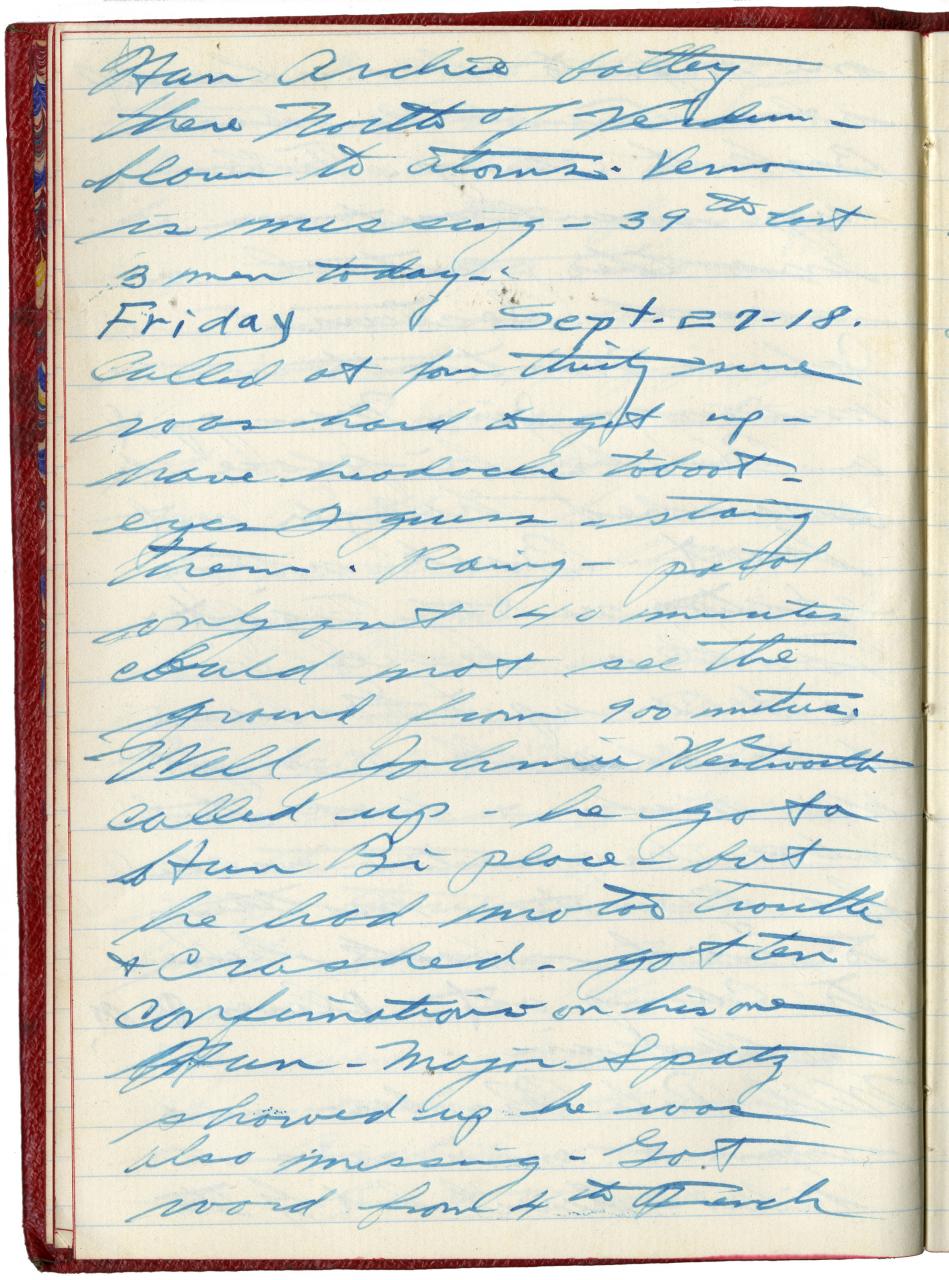 Hun Archie battey
there North of Verdun -
blown to atoms. Verno
is missing - 39th lost
3 men today -
Friday Sept. 27-18.
Called at four thirty sure
was hard to get up -
have headache toboot -
eyes I guess - strang
them. Raing - patrol
only out 40 minutes
could not see the
ground from 900 meters.
Well Johnnie Wentworth
called up - he got a
Hun Bi place - but
he had motor trouble
& crashed - got ten
confirmations on his one
Hun - Major Spatz
showed up he was
also missing - Got
word from 4th French